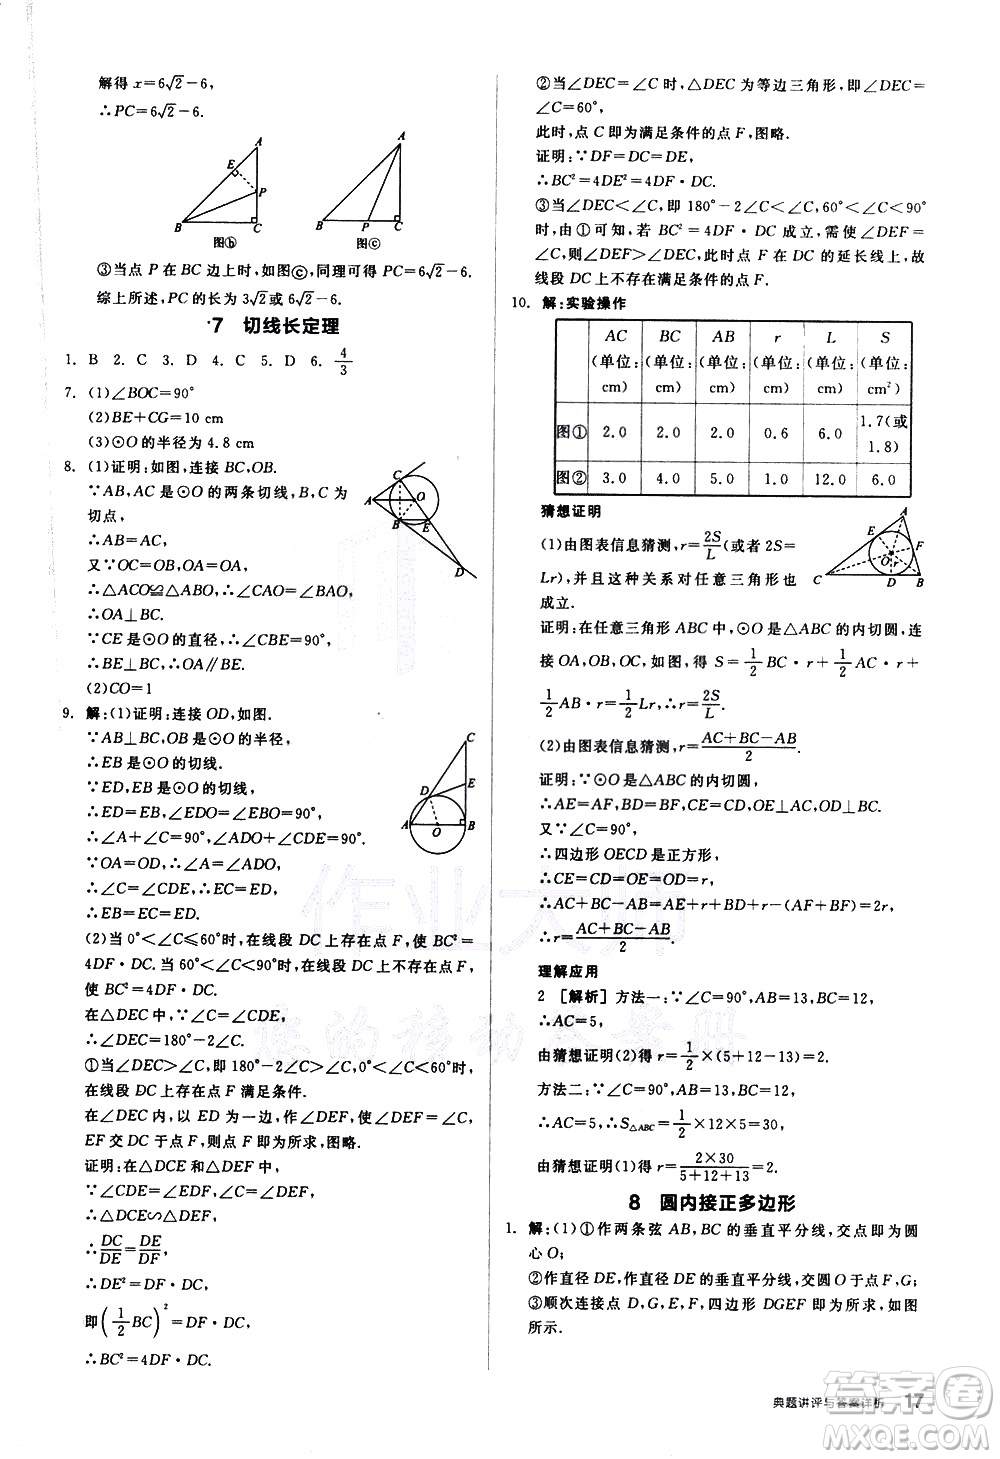 解得 x=6√2-6,
∴PC=6√2-6.
A
E
P
B
C
图ⓑ
A
B
P
C
图ⓒ
③当点 P 在 BC 边上时,如图ⓒ,同理可得 PC=6√2-6.
综上所述,PC 的长为 3√2 或 6√2-6.
7 切线长定理
1. B 2. C 3. D 4. C 5. D 6. 4/3
7. (1)∠BOC=90°
(2)BE+CG=10 cm
(3)⊙O 的半径为 4.8 cm
8. (1)证明:如图,连接 BC,OB.
∵AB,AC 是⊙O 的两条切线,B,C 为
切点,
∴AB=AC,
又∵OC=OB,OA=OA,
∴△ACO≌△ABO,∴∠CAO=∠BAO,
∴OA⊥BC.
∵CE 是⊙O 的直径,∴∠CBE=90°,
∴BE⊥BC,∴OA∥BE.
(2)CO=1
C
A
O
B
E
D
9. 解:(1)证明:连接 OD,如图.
∵AB⊥BC,OB 是⊙O 的半径,
∴EB 是⊙O 的切线.
∵ED,EB 是⊙O 的切线,
∴ED=EB,∠EDO=∠EBO=90°,
∴∠A+∠C=90°,∠ADO+∠CDE=90°.
∵OA=OD,∴∠A=∠ADO,
∴∠C=∠CDE,∴EC=ED,
∴EB=EC=ED.
C
E
D
A
O
B
(2)当 0°<∠C≤60°时,在线段 DC 上存在点 F,使 BC²=
4DF·DC.当 60°<∠C<90°时,在线段 DC 上不存在点 F,
使 BC²=4DF·DC.
在△DEC 中,∵∠C=∠CDE,
∴∠DEC=180°-2∠C.
①当∠DEC>∠C,即 180°-2∠C>∠C,0°<∠C<60°时,
在线段 DC 上存在点 F 满足条件.
在∠DEC 内,以 ED 为一边,作∠DEF,使∠DEF=∠C,
EF 交 DC 于点 F,则点 F 即为所求,图略.
证明:在△DCE 和△DEF 中,
∵∠CDE=∠EDF,∠C=∠DEF,
∴△DCE∽△DEF,
∴DC/DE=DE/DF,
∴DE²=DF·DC,
即(1/2BC)²=DF·DC,
∴BC²=4DF·DC.
②当∠DEC=∠C 时,△DEC 为等边三角形,即∠DEC=
∠C=60°,
此时,点 C 即为满足条件的点 F,图略.
证明:∵DF=DC=DE,
∴BC²=4DE²=4DF·DC.
③当∠DEC<∠C,即 180°-2∠C<∠C,60°<∠C<90°
时,由①可知,若 BC²=4DF·DC 成立,需使∠DEF=
∠C,则∠DEF>∠DEC,此时点 F 在 DC 的延长线上,故
线段 DC 上不存在满足条件的点 F.
10. 解:实验操作
AC(单位:cm) BC(单位:cm) AB(单位:cm) r(单位:cm) L(单位:cm) S(单位:cm²)
图① 2.0 2.0 2.0 0.6 6.0 1.7(或1.8)
图② 3.0 4.0 5.0 1.0 12.0 6.0
猜想证明
(1)由图表信息猜测,r=2S/L(或者 2S=
Lr),并且这种关系对任意三角形也
成立.
A
E
F
O
r
C
D
B
证明:在任意三角形 ABC 中,⊙O 是△ABC 的内切圆,连
接 OA,OB,OC,易得 S=1/2BC·r+1/2AC·r+
1/2AB·r=1/2Lr,∴r=2S/L.
(2)由图表信息猜测,r=(AC+BC-AB)/2.
证明:∵⊙O 是△ABC 的内切圆,
∴AE=AF,BF=BD,CD=CE,OE⊥AC,OD⊥BC.
又∵∠C=90°,
∴四边形 OECD 是正方形,
∴CE=CD=OE=OD=r,
∴AC+BC-AB=AE+r+BD+r-(AF+BF)=2r,
∴r=(AC+BC-AB)/2.
理解应用
2 [解析] 方法一:∵∠C=90°,AB=13,BC=12,
∴AC=5,
由猜想证明(2)得 r=1/2×(5+12-13)=2.
方法二:∵∠C=90°,AB=13,BC=12,
∴AC=5,∴S△ABC=1/2×12×5=30,
由猜想证明(1)得 r=2×30/(5+12+13)=2.
8 圆内接正多边形
1. 解:(1)①作两条弦 AB,BC 的垂直平分线,交点即为圆
心 O;
②作直径 DE,作直径 DE 的垂直平分线,交圆 O 于点 F,G;
③顺次连接点 D,G,E,F,四边形 DGEF 即为所求,如图
所示.
作业大师
典题讲评与答案详析 17
答案圈
MXQE.COM